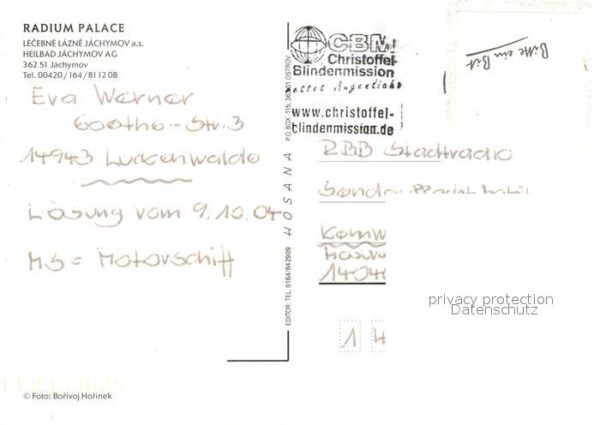 RADIUM PALACE
LÉČEBNÉ LÁZNĚ JÁCHYMOV a.s.
HEILBAD JÁCHYMOV AG
362 51 Jáchymov
Tel. 00420/164/81 12 08
Eva Werner
Goethe-Str. 3
14943 Luckenwalde
Lösung vom 9.10.04
MS = Motorschiff
© Foto: Bořivoj Hořínek
EDITOR: TEL. 0164/842909 HOSANA P.O.BOX 115, 363 01 OSTROV
CBM
Christoffel-
Blindenmission
rettet Augenlicht
www.christoffel-
blindenmission.de
Bitte ein Bit
RBB Stadtradio
Masur
1404
privacy protection
Datenschutz
14